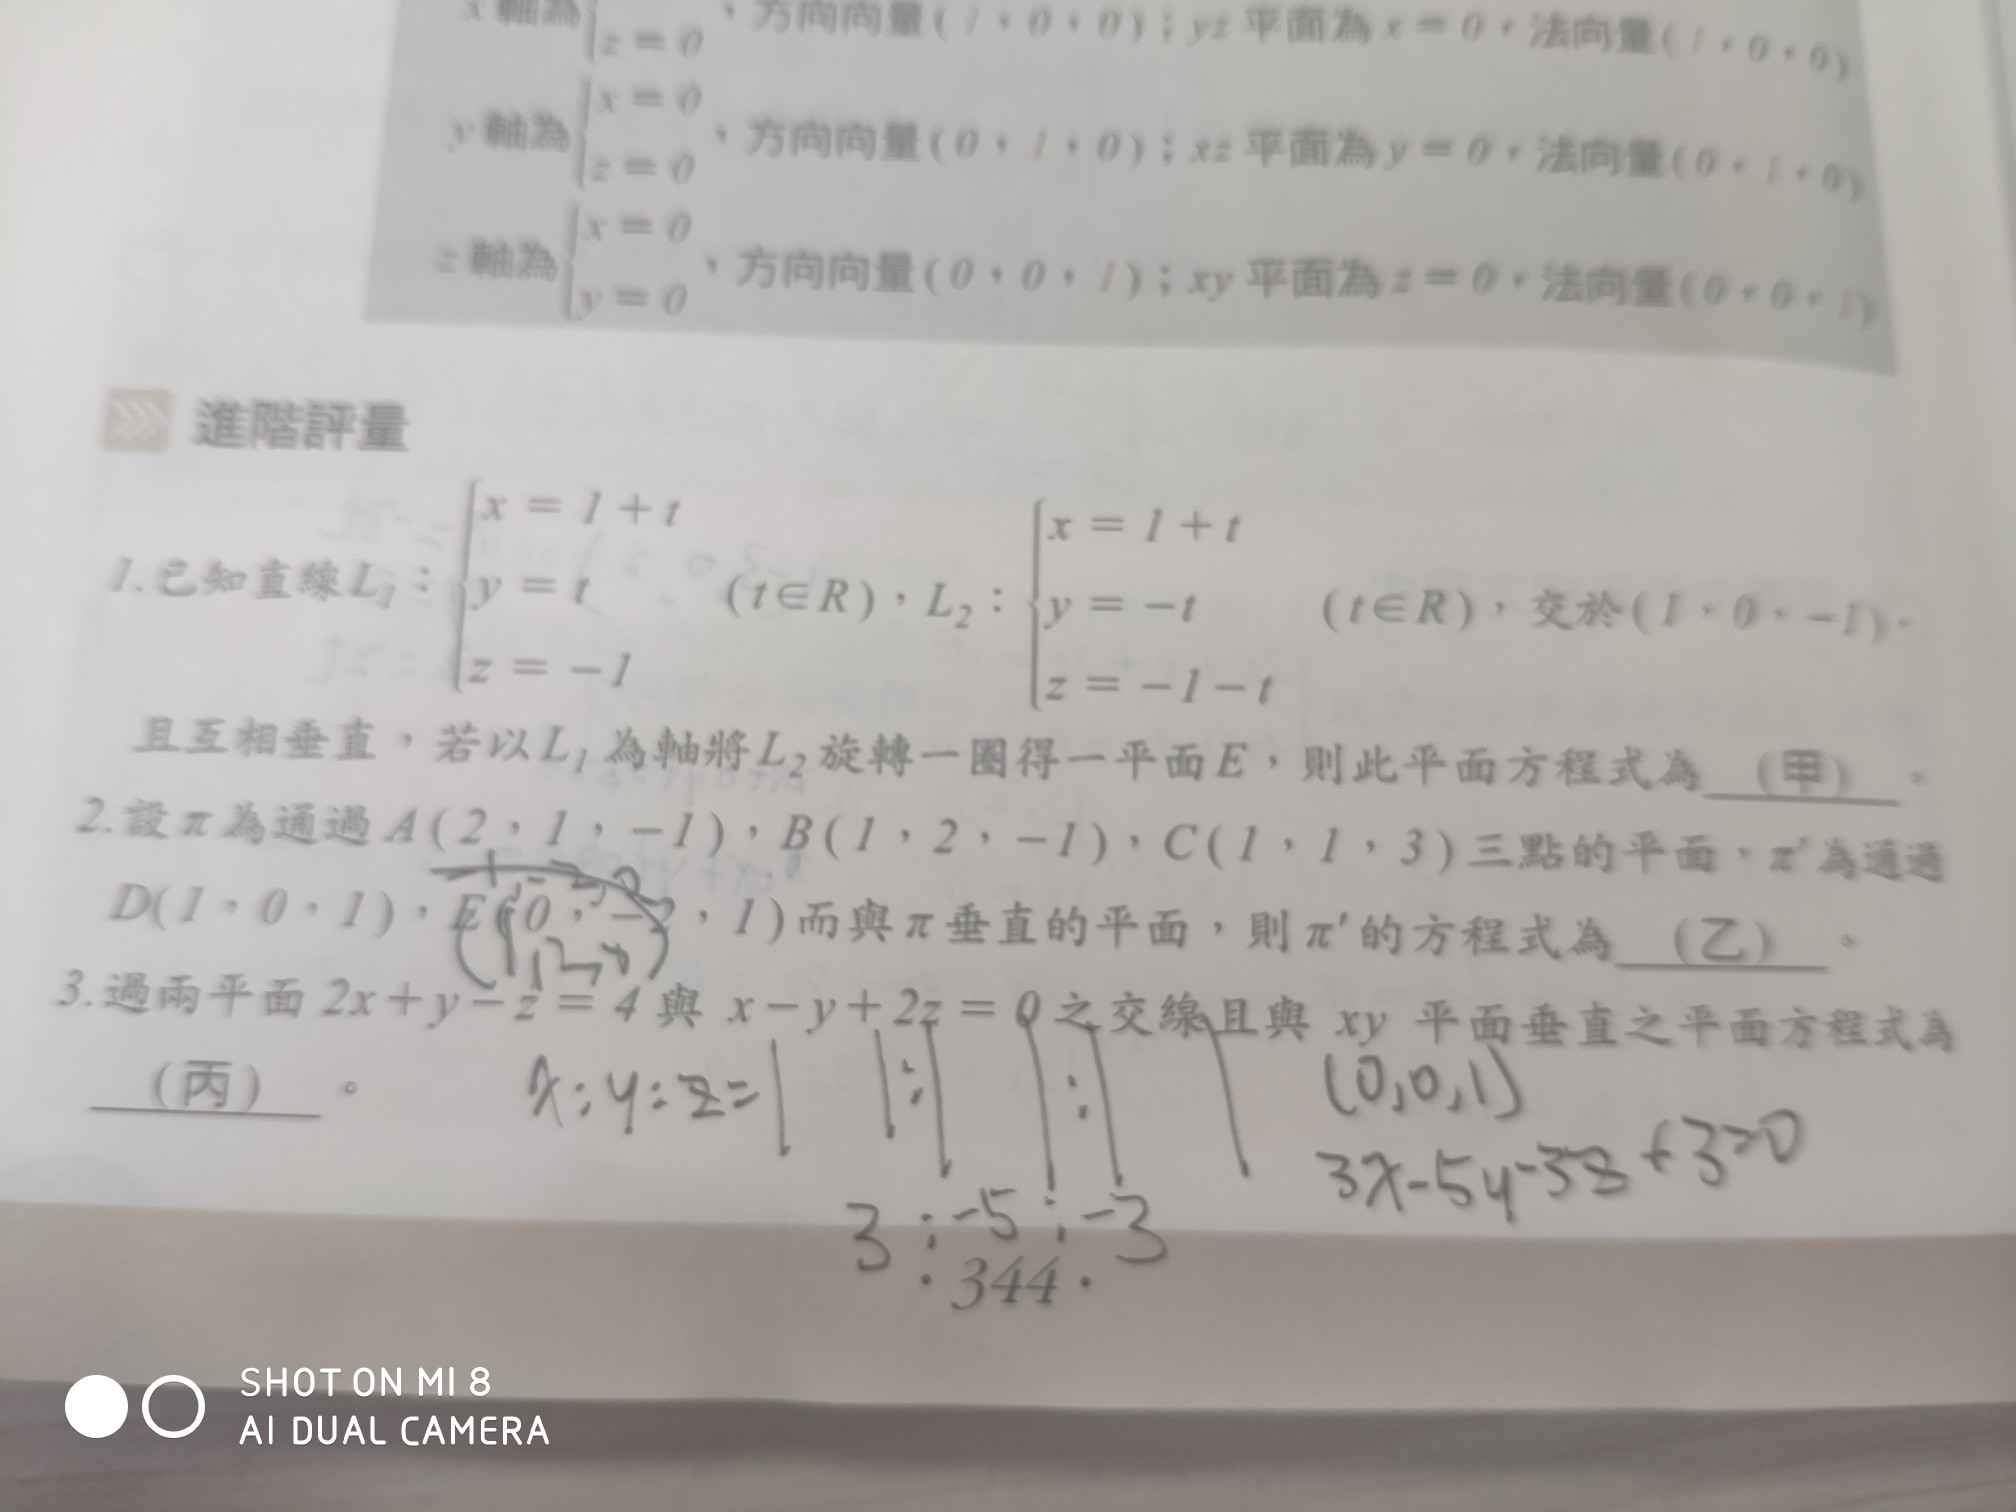 x 軸為 z = 0 , 方向向量 ( 1 , 0 , 0 ) ; yz 平面為 x = 0 , 法向量 ( 1 , 0 , 0 )
y 軸為 { x = 0 z = 0 , 方向向量 ( 0 , 1 , 0 ) ; xz 平面為 y = 0 , 法向量 ( 0 , 1 , 0 )
z 軸為 { x = 0 y = 0 , 方向向量 ( 0 , 0 , 1 ) ; xy 平面為 z = 0 , 法向量 ( 0 , 0 , 1 )
進階評量
1. 已知直線 L₁ : { x = 1 + t y = t z = -1 ( t ∈ R ) , L₂ : { x = 1 + t y = -t z = -1 - t ( t ∈ R ) , 交於 ( 1 , 0 , -1 ) ,
且互相垂直 , 若以 L₁ 為軸將 L₂ 旋轉一圈得一平面 E , 則此平面方程式為 (甲) 。
2. 設 π 為通過 A ( 2 , 1 , -1 ) , B ( 1 , 2 , -1 ) , C ( 1 , 1 , 3 ) 三點的平面 , π' 為通過
D ( 1 , 0 , 1 ) , E ( 0 , -2 , 1 ) 而與 π 垂直的平面 , 則 π' 的方程式為 (乙) 。
3. 過兩平面 2x + y - z = 4 與 x - y + 2z = 0 之交線且與 xy 平面垂直之平面方程式為
(丙) 。
x : y : z = | | : | | : | |
(0,0,1)
3x-5y-3z+3=0
3 : -5 : -3
· 344 ·
SHOT ON MI 8
AI DUAL CAMERA